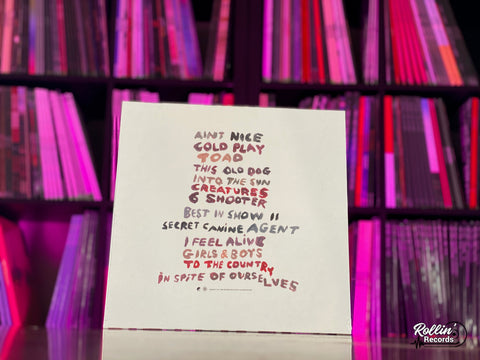 AINT NICE
COLD PLAY
TOAD
THIS OLD DOG
INTO THE SUN
CREATURES
6 SHOOTER
BEST IN SHOW II
SECRET CANINE AGENT
I FEEL ALIVE
GIRLS & BOYS
TO THE COUNTRY
IN SPITE OF OURSELVES
Rollin'
Records
Rollin'
Records